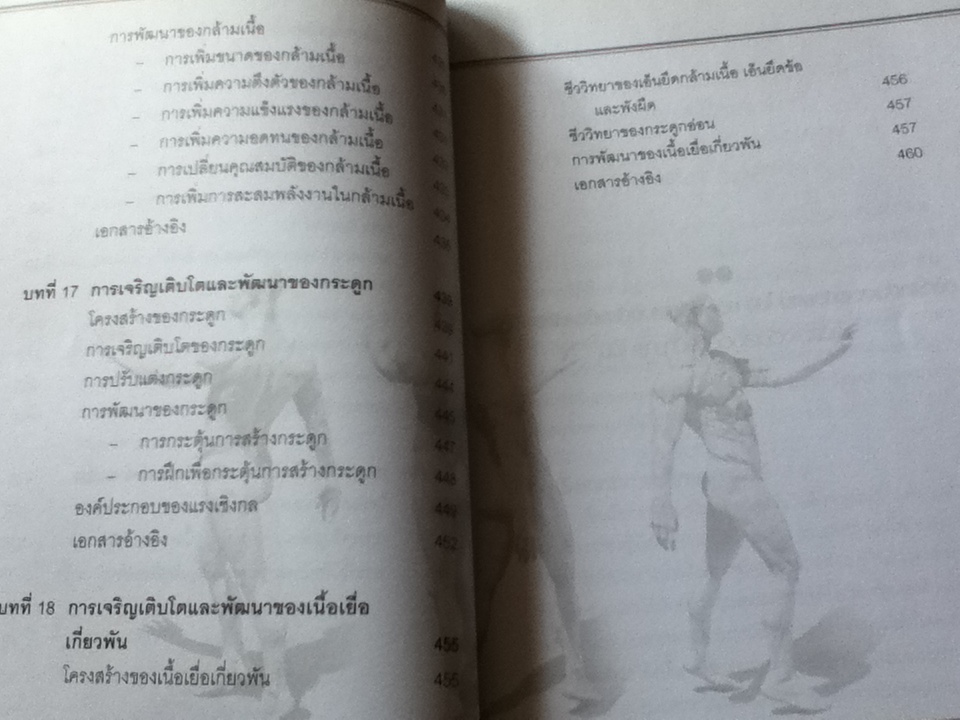 การพัฒนาของกล้ามเนื้อ
- การเพิ่มขนาดของกล้ามเนื้อ
- การเพิ่มความตึงตัวของกล้ามเนื้อ
- การเพิ่มความแข็งแรงของกล้ามเนื้อ
- การเพิ่มความอดทนของกล้ามเนื้อ
- การเปลี่ยนคุณสมบัติของกล้ามเนื้อ
- การเพิ่มการสะสมพลังงานในกล้ามเนื้อ
เอกสารอ้างอิง
บทที่ 17 การเจริญเติบโตและพัฒนาของกระดูก
โครงสร้างของกระดูก
การเจริญเติบโตของกระดูก 441
การปรับแต่งกระดูก 444
การพัฒนาของกระดูก
- การกระตุ้นการสร้างกระดูก 447
- การฝึกเพื่อกระตุ้นการสร้างกระดูก 448
องค์ประกอบของแรงเชิงกล 449
เอกสารอ้างอิง 452
บทที่ 18 การเจริญเติบโตและพัฒนาของเนื้อเยื่อ
เกี่ยวพัน 455
โครงสร้างของเนื้อเยื่อเกี่ยวพัน 455
ชีววิทยาของเอ็นยึดกล้ามเนื้อ เอ็นยึดข้อ
และพังผืด 456
ชีววิทยาของกระดูกอ่อน 457
การพัฒนาของเนื้อเยื่อเกี่ยวพัน 457
เอกสารอ้างอิง 460